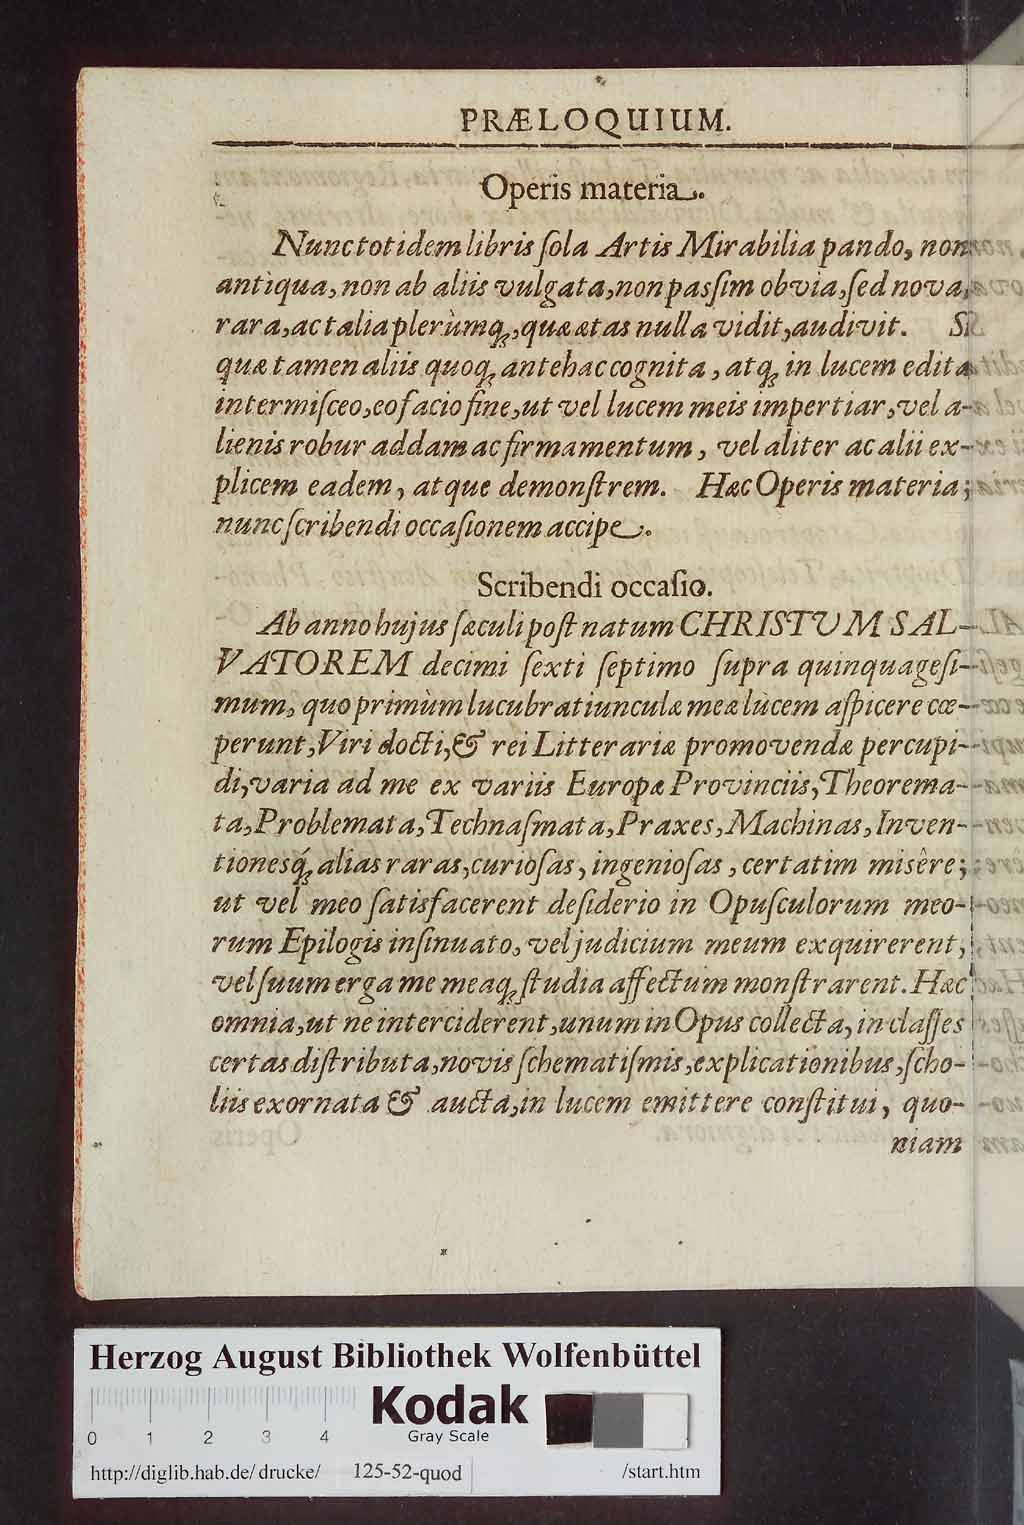 PRÆLOQUIUM.
Operis materia.
Nunc totidem libris ſola Artis Mirabilia pando, non
antiqua, non ab aliis vulgata, non paſſim obvia, ſed nova,
rara, ac talia plerùmq́ꝫ, quæ ætas nulla vidit, audivit. Si
quæ tamen aliis quoqꝫ antehac cognita, atqꝫ in lucem edita
intermiſceo, eo facio fine, ut vel lucem meis impertiar, vel a-
lienis robur addam ac firmamentum, vel aliter ac alii ex-
plicem eadem, atque demonſtrem. Hæc Operis materia;
nunc ſcribendi occaſionem accipe.
Scribendi occaſio.
Ab anno hujus ſæculi poſt natum CHRISTUM SAL-
VATOREM decimi ſexti ſeptimo ſupra quinquageſi-
mum, quo primùm lucubratiunculæ meæ lucem aſpicere cœ-
perunt, Viri docti, & rei Litterariæ promovendæ percupi-
di, varia ad me ex variis Europæ Provinciis, Theorema-
ta, Problemata, Technaſmata, Praxes, Machinas, Inven-
tionesq́ꝫ alias raras, curioſas, ingenioſas, certatim misêre;
ut vel meo ſatisfacerent deſiderio in Opuſculorum meo-
rum Epilogis inſinuato, vel judicium meum exquirerent,
vel ſuum erga me meaqꝫ ſtudia affectum monſtrarent. Hæc
omnia, ut ne interciderent, unum in Opus collecta, in claſſes
certas diſtributa, novis ſchematiſmis, explicationibus, ſcho-
liis exornata & aucta, in lucem emittere conſtitui, quo-
niam
Herzog August Bibliothek Wolfenbüttel
Kodak
0 1 2 3 4 Gray Scale
http://diglib.hab.de/drucke/ 125-52-quod /start.htm